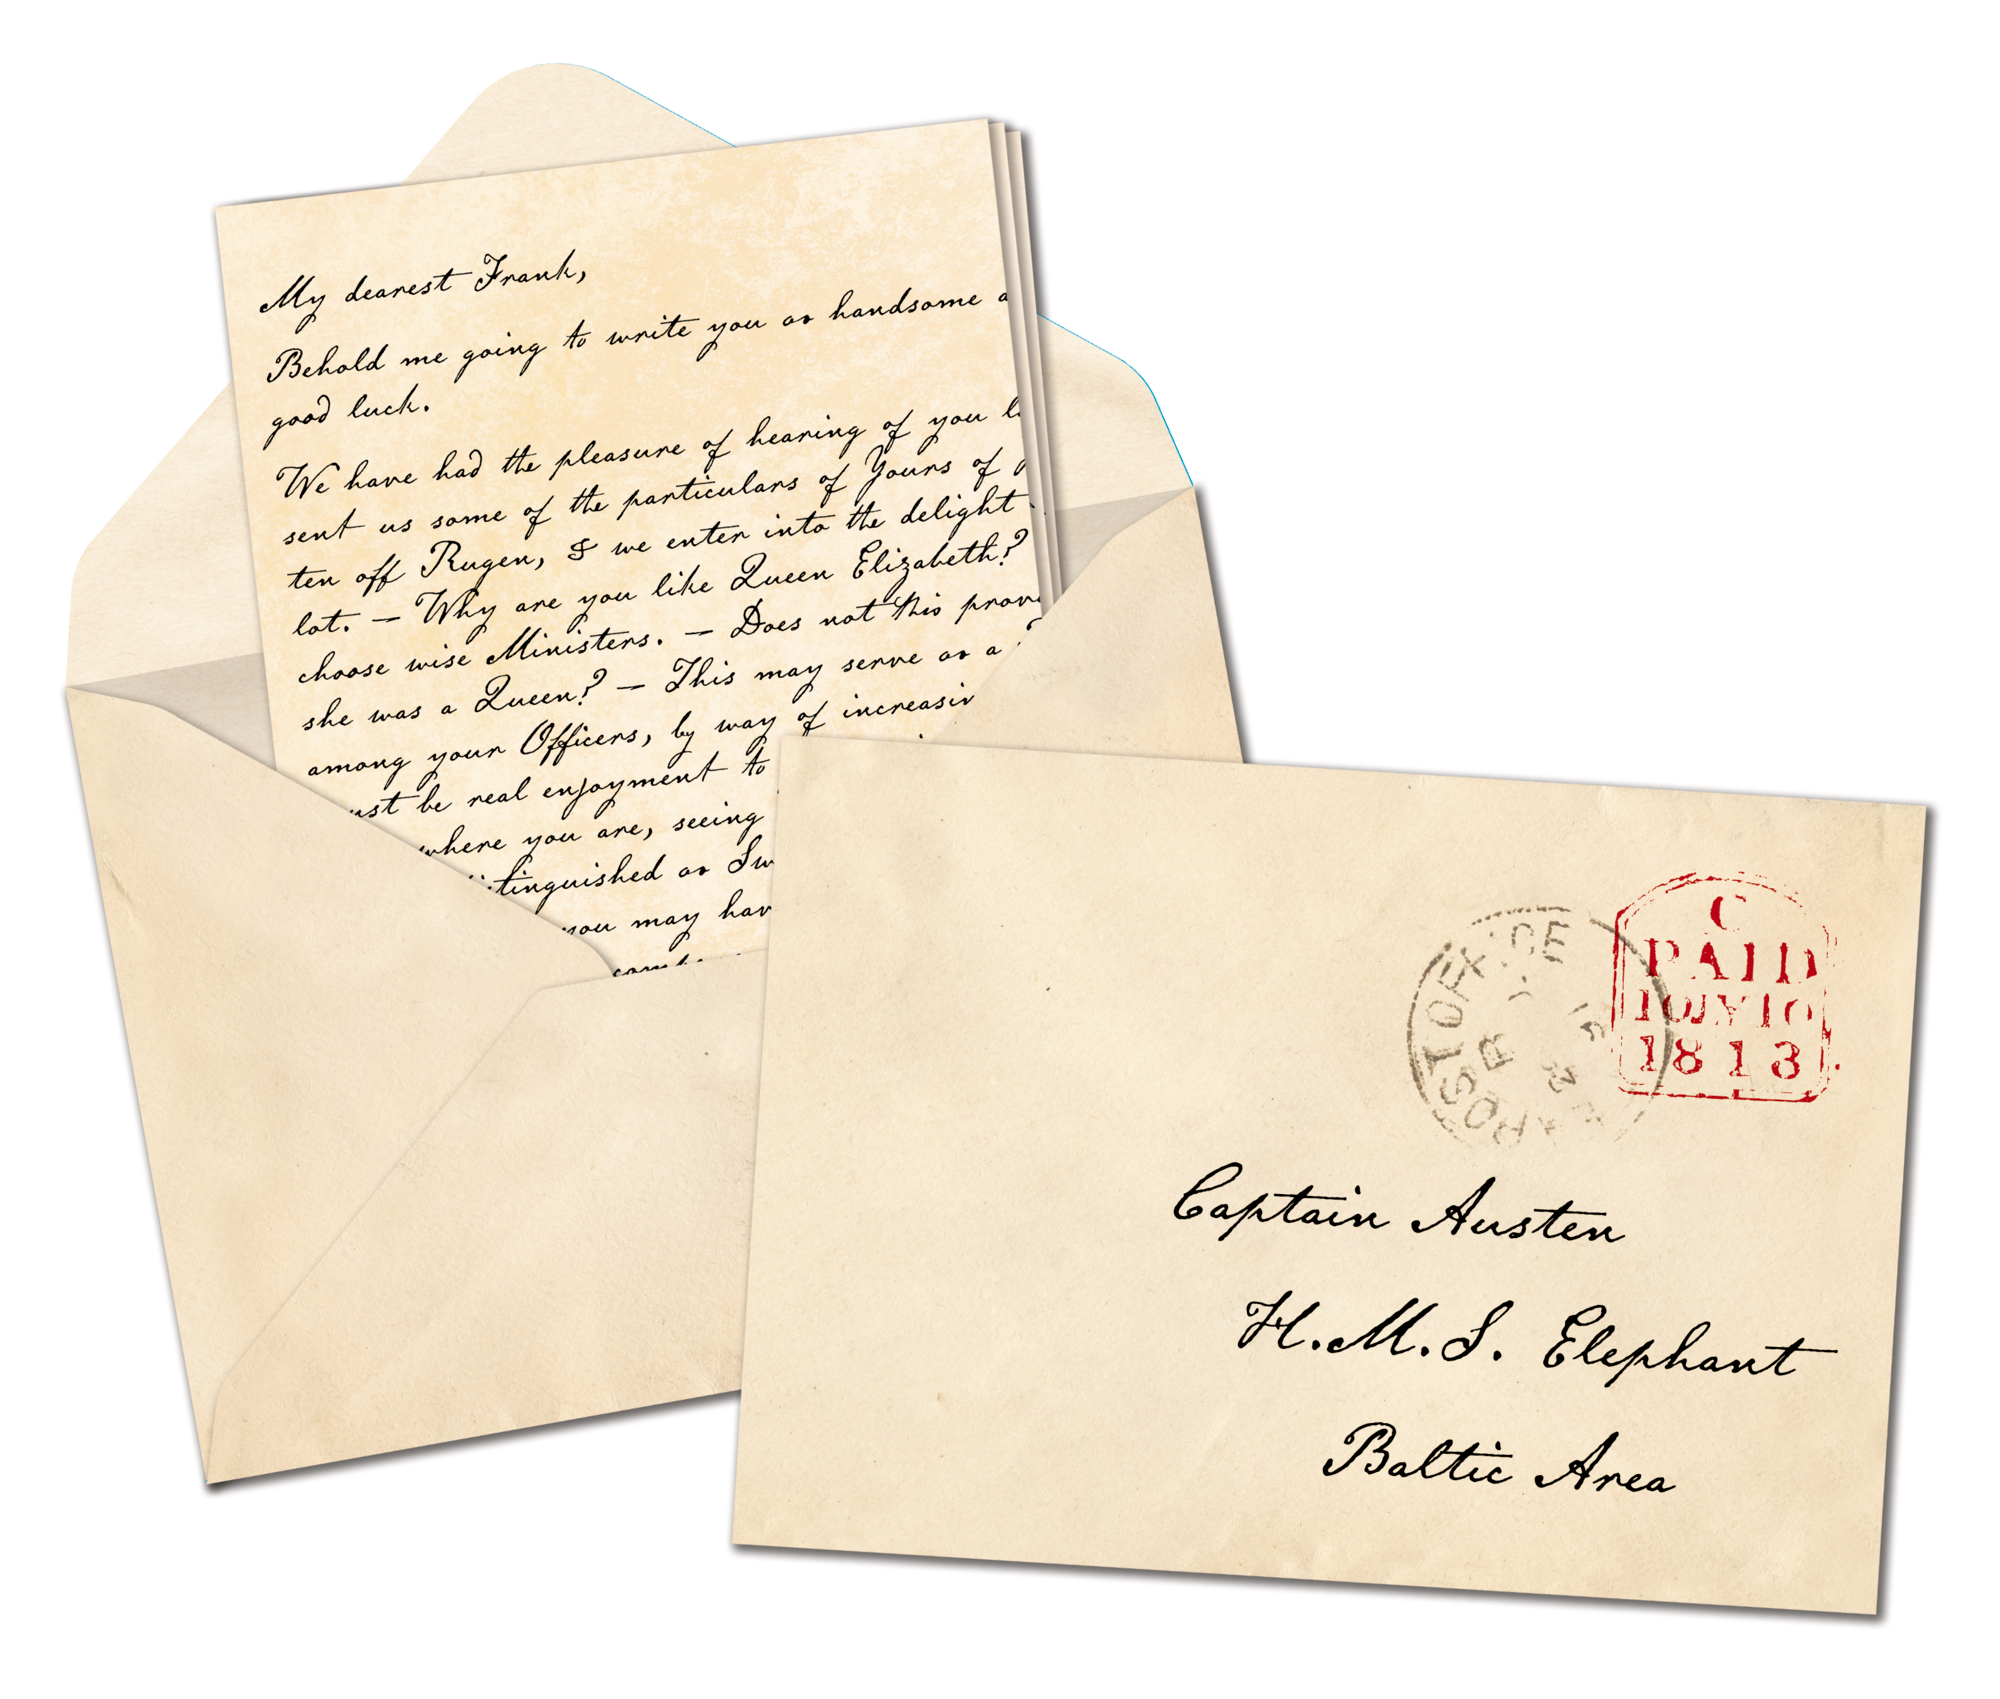 My dearest Frank,
Behold me going to write you as handsome a
good luck.
We have had the pleasure of hearing of you
sent us some of the particulars of Yours of
ten off Rugen, & we enter into the delight
lot. — Why are you like Queen Elizabeth?
choose wise Ministers. — Does not this
she was a Queen? — This may serve as a
among your Officers, by way of
be real enjoyment to
where you are, seeing
as
you may
C
PAID
10 JY 10
1813
Captain Austen
H.M.S. Elephant
Baltic Area